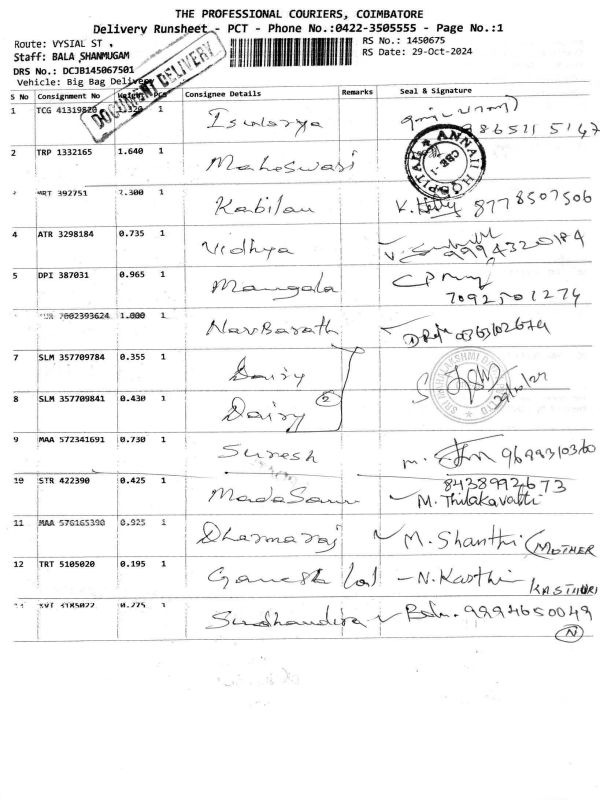 THE PROFESSIONAL COURIERS, COIMBATORE
Delivery Runsheet - PCT - Phone No.:0422-3505555 - Page No.:1
Route: VYSIAL ST . RS No.: 1450675
Staff: BALA SHANMUGAM RS Date: 29-Oct-2024
DRS No.: DCJB145067501
Vehicle: Big Bag Delivery
DOCUMENT DELIVERY
S No Consignment No Weight PCS Consignee Details Remarks Seal & Signature
1 TCG 41319820 1.320 1 Iswarya
ANNAII HOSPITAL CBE-1
2 TRP 1332165 1.640 1 Maheswari
MRT 392751 2.300 1 Kabilan 8778507506
4 ATR 3298184 0.735 1 Vidhya 9994320184
5 DPI 387031 0.965 1 Mangala 7092501274
7002393624 1.000 1 NavBarath
7 SLM 357709784 0.355 1 Dairy
8 SLM 357709841 0.430 1 Dairy 2 29/10/24
9 MAA 572341691 0.730 1 Suresh
10 STR 422390 0.425 1 8438992673
M. Thilakavatti
11 MAA 576165390 0.925 1 Dharmaraj M. Shanthi (MOTHER
12 TRT 5105020 0.195 1 Ganesh Lal - N. Kasthi
KASTHURI
3185022 0.275 1 9994650049
N